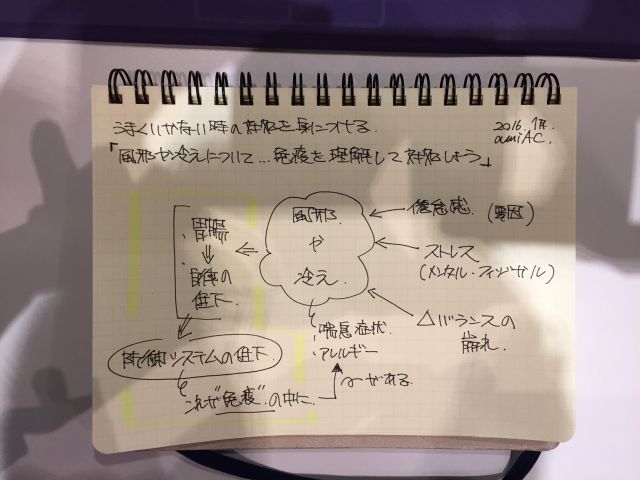 うまくいかない時の対処を身につける。
2016.
amiAC.
「風邪や冷えについて…免疫を理解して対処しよう」
風邪
や
冷え
倦怠感 (要因)
ストレス
(メンタル・フィジカル)
△バランスの
崩れ
・胃腸
・身体の
低下
防御システムの低下
喘息症状
・アレルギー
これが"免疫"の中に
がある